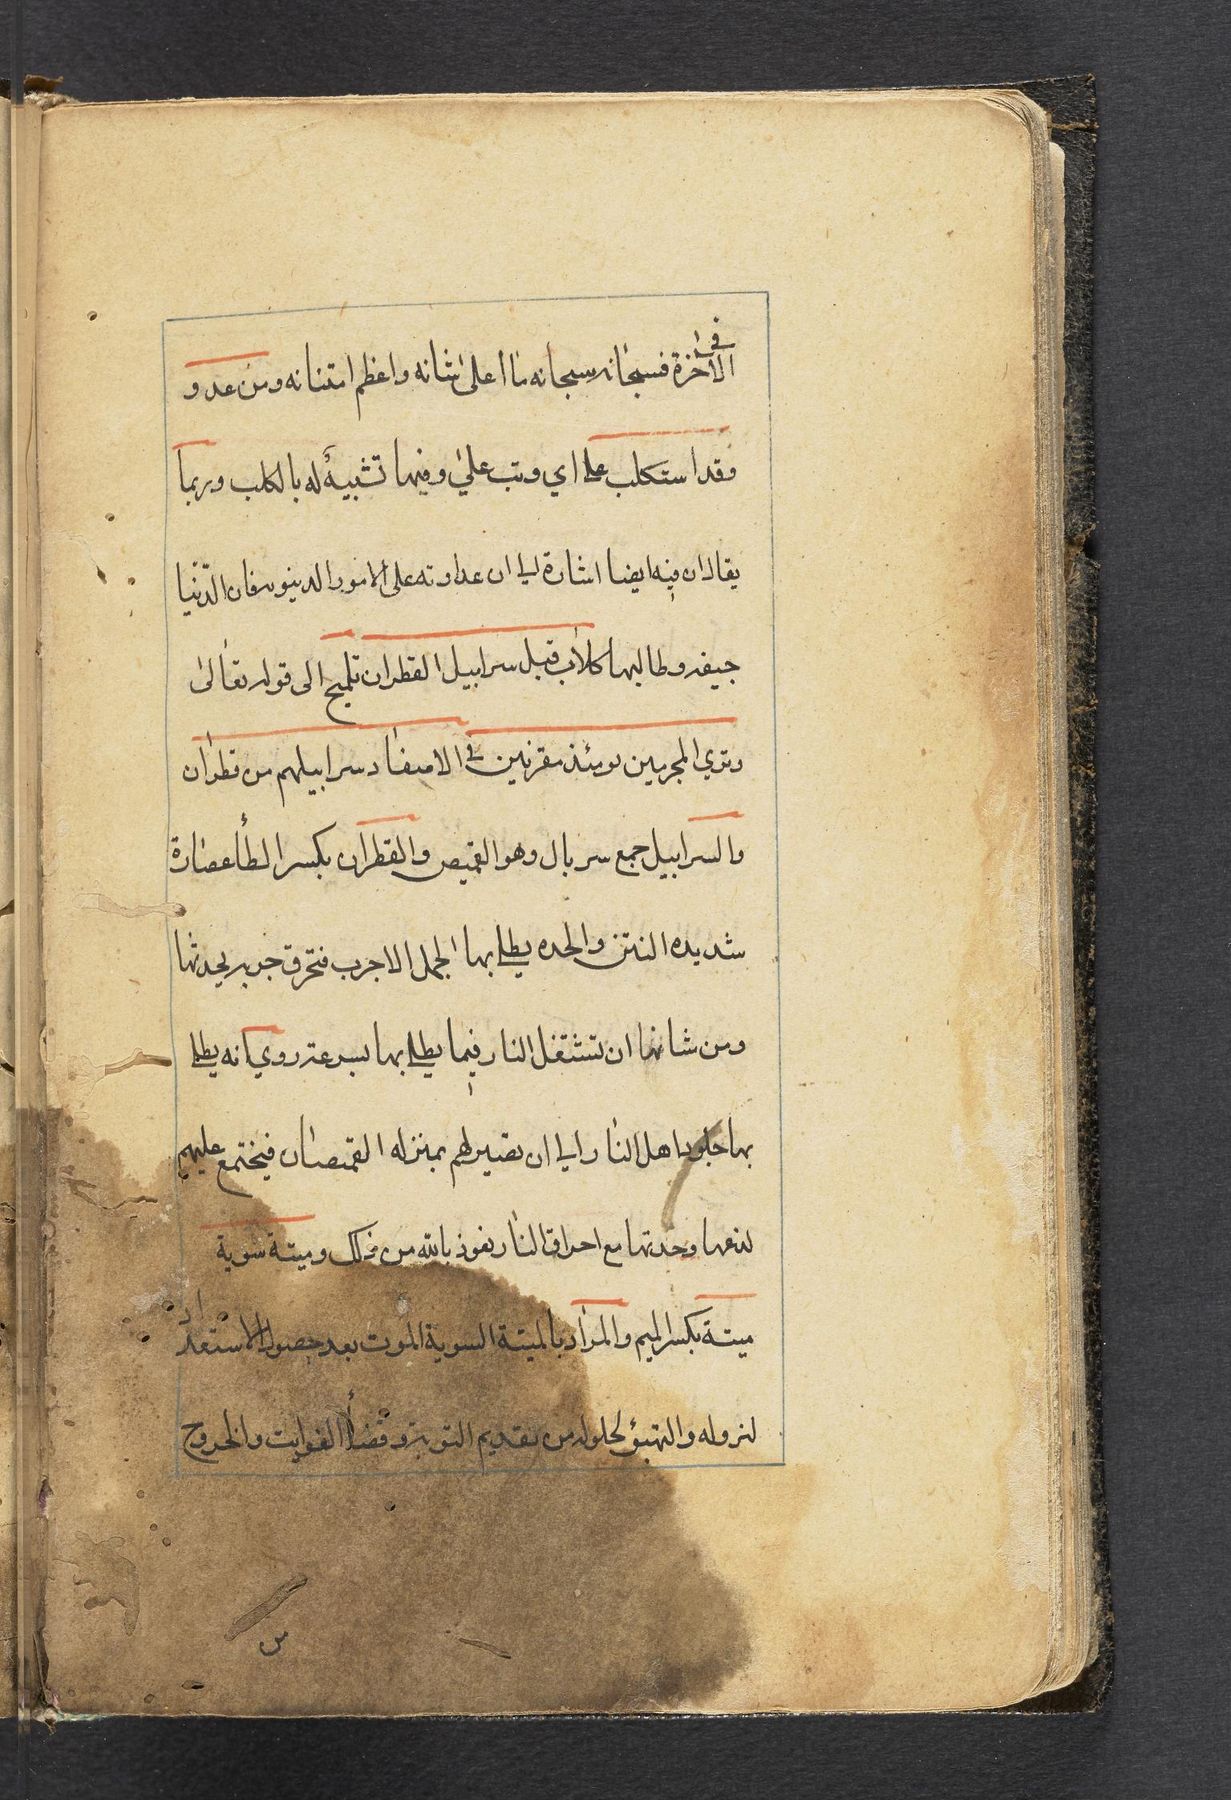 في
الاخرة فسبحانه سبحانه ما اعلى شانه واعظم امتنانه ومن عدو
وقد استكلب على اي وثب علي وفيها تشبيه له بالكلب وربما
يقال ان فيه ايضا اشارة الى ان عداوته على الامور الدنيويه فان الدّنيا
جيفه وطالبها كلاب قبل سرابيل القطران تلميح الى قوله تعالى
وتري المجرمين يومئذ مقرنين في الاصفاد سرابيلهم من قطران
والسرابيل جمع سربال وهو القميص والقطران بكسر الطأ عصارة
شديده النتن والحده يطلى بها الجمل الاجرب فتحرق جربه بحدتها
ومن شانها ان تشتغل النار فيما يطلى بها بسرعته روي انه يطلى
بها جلود اهل النار الى ان تصير لهم بمنزله القمصان فيجتمع عليهم
لذعها وحدتها مع احراق النار نعوذ بالله من ذلك وميتة سوية
ميتة بكسر الميم والمراد بالميتة السوية الموت بعد حصول الاستعداد
لنزوله والتهيؤ لحلوله من تقديم التوبه وقضأ الفوايت والخروج